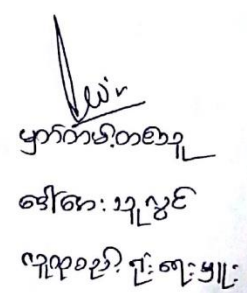 မှတ်တမ်းတင်သူ
ဒေါ်အေးသူလွင်
လူထုစည်းရုံးရေးမှူး